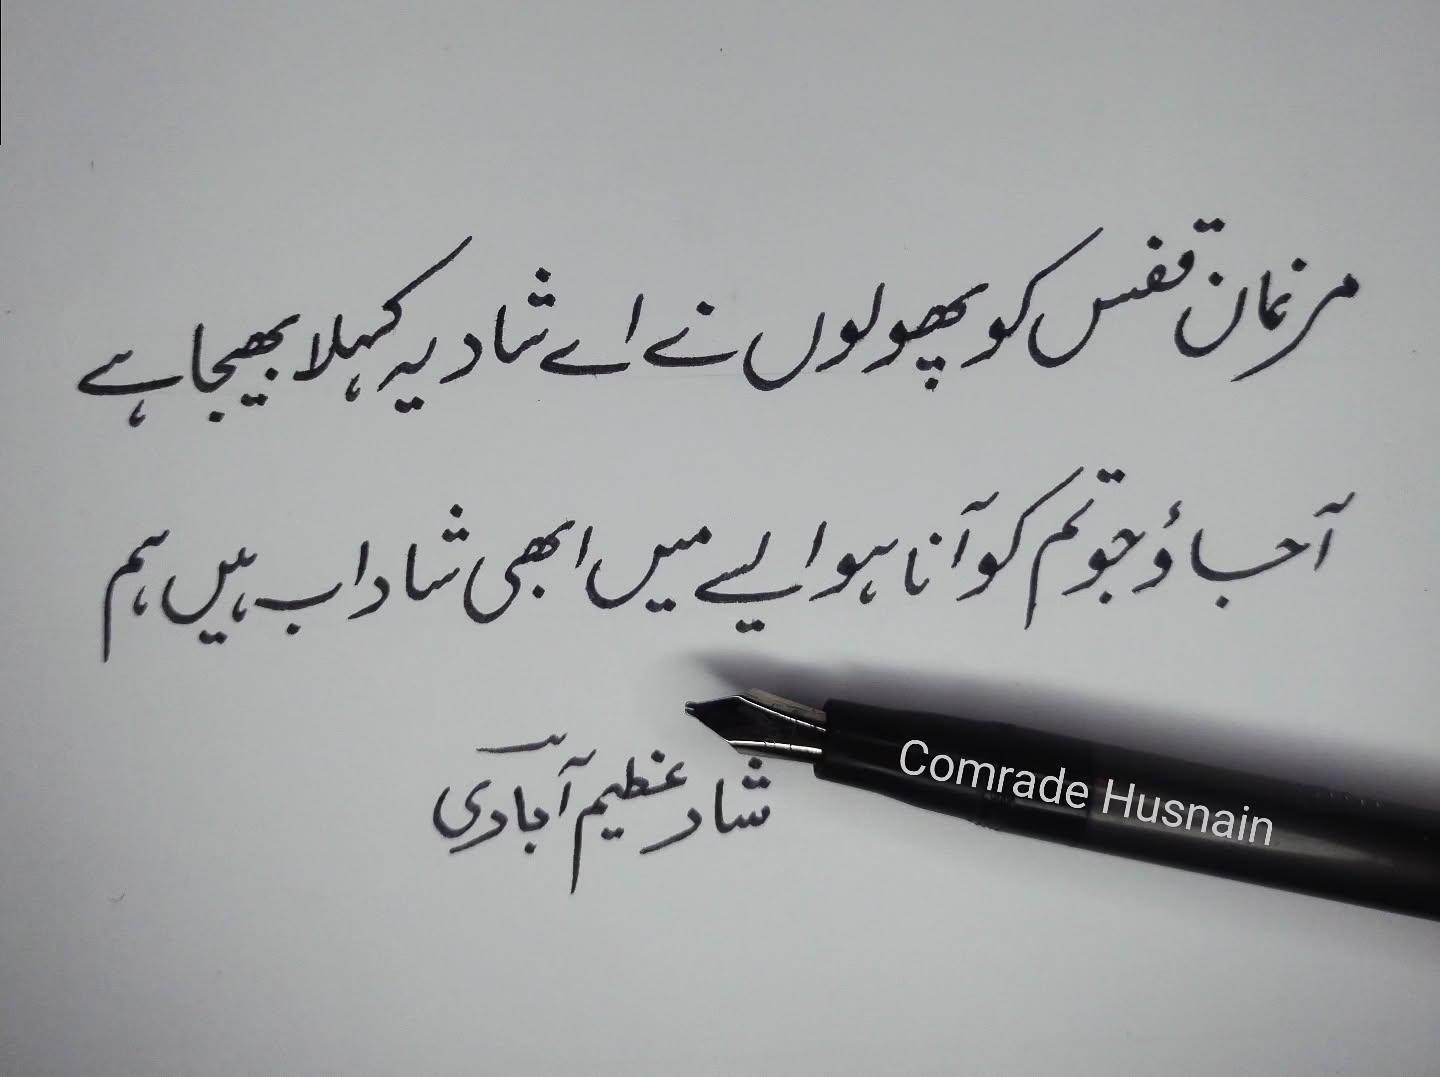 مرغان قفس کو پھولوں نے اے شاد یہ کہلا بھیجا ہے
آ جاؤ جو تم کو آنا ہو ایسے میں ابھی شاداب ہیں ہم
شاد عظیم آبادی
Comrade Husnain